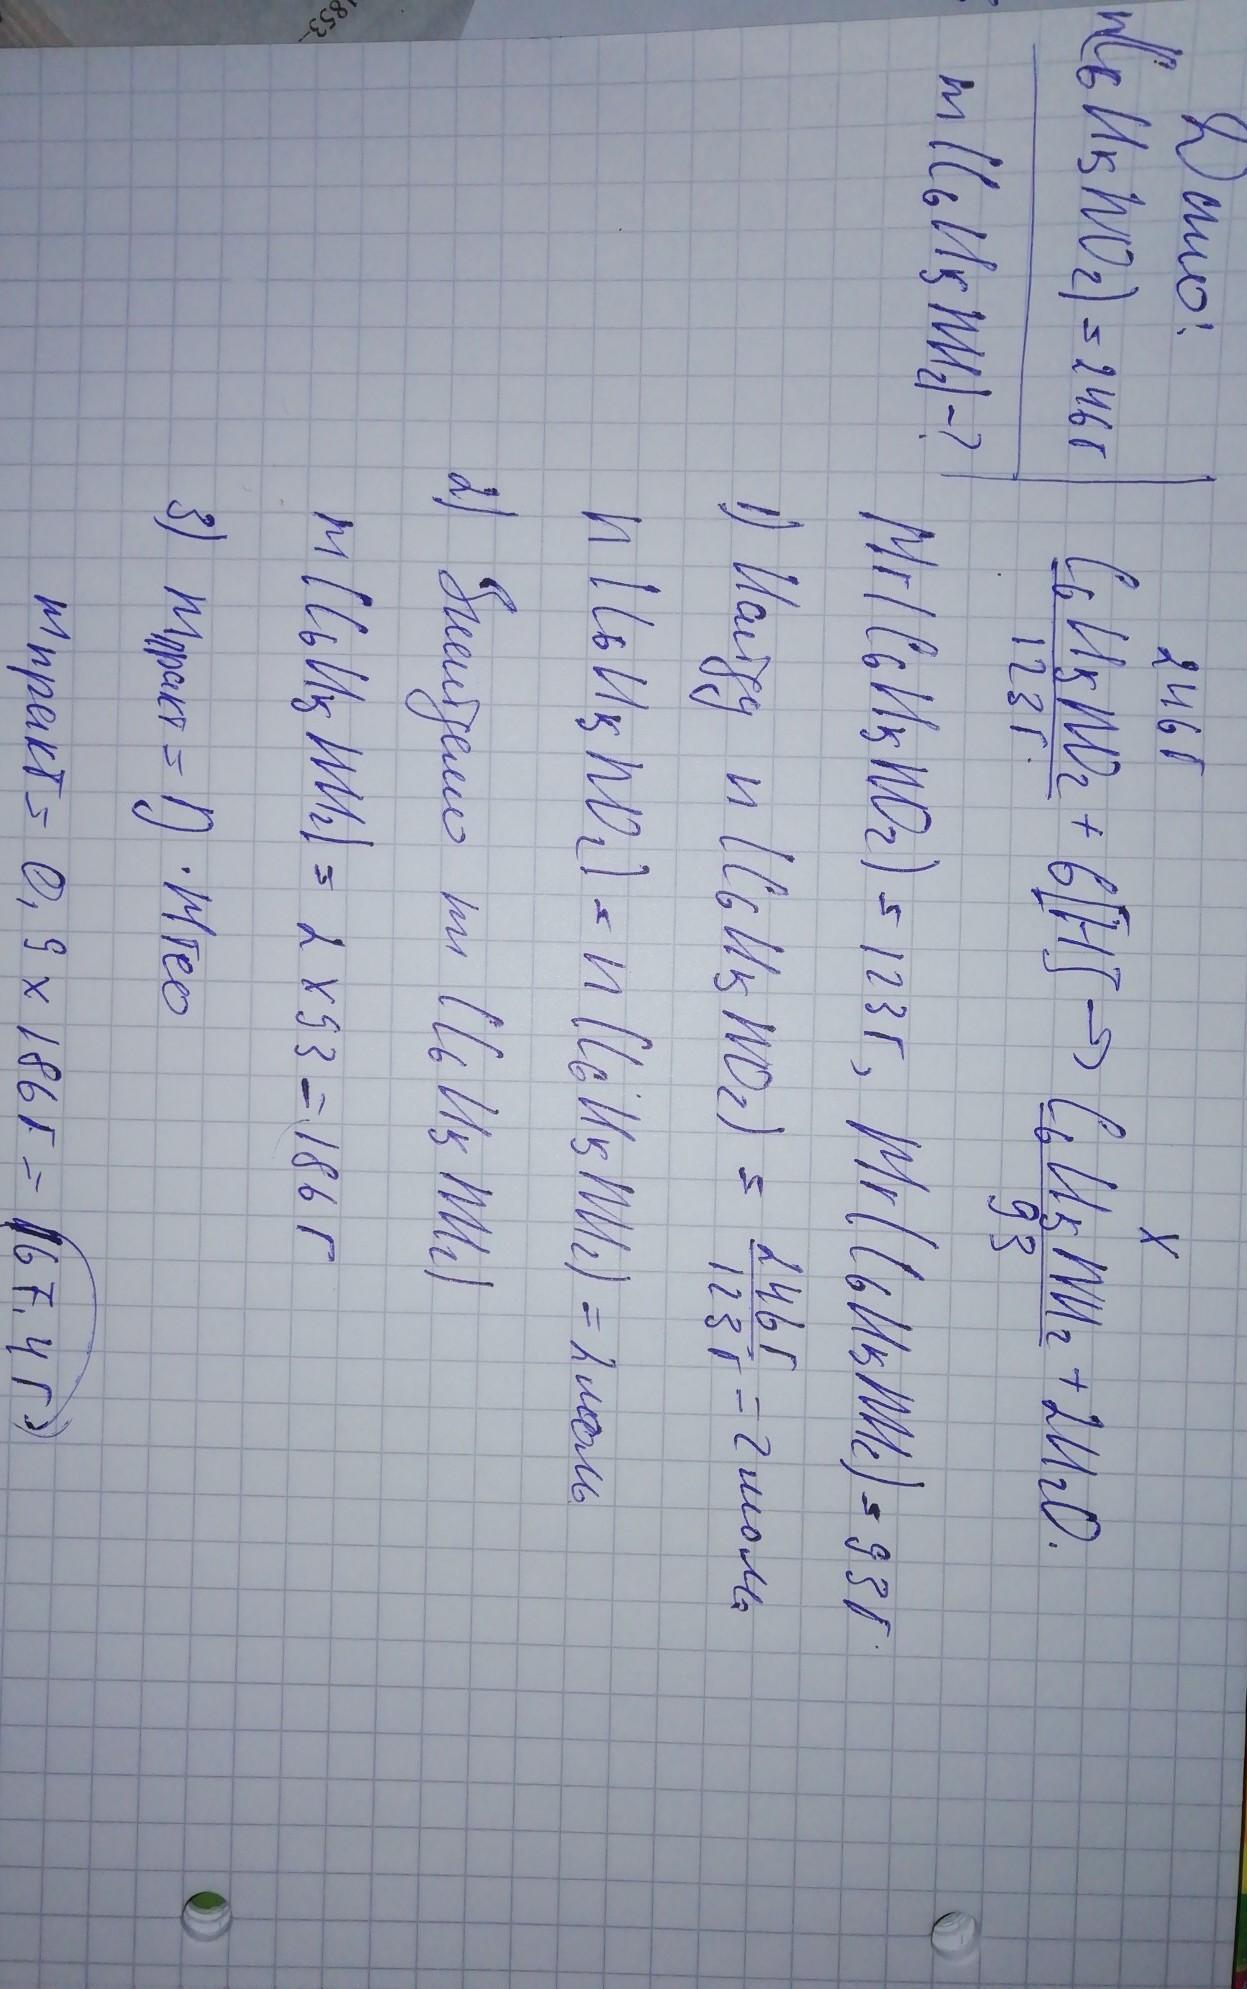 Дано:
m(C₆H₅NO₂) = 246г
m(C₆H₅NH₂) - ?
246г x
C₆H₅NO₂ + 6[H] → C₆H₅NH₂ + 2H₂O.
123г. 93
Mr(C₆H₅NO₂) = 123г, Mr(C₆H₅NH₂) = 93г.
1) Найду n (C₆H₅NO₂) = 246г/123г = 2 моль
n(C₆H₅NO₂) = n(C₆H₅NH₂) = 2 моль
2) m (C₆H₅NH₂)
m(C₆H₅NH₂) = 2 x 93 = 186г
3) mпракт = η · mтео
mпракт = 0,9 x 186г = 167,4г
1853-